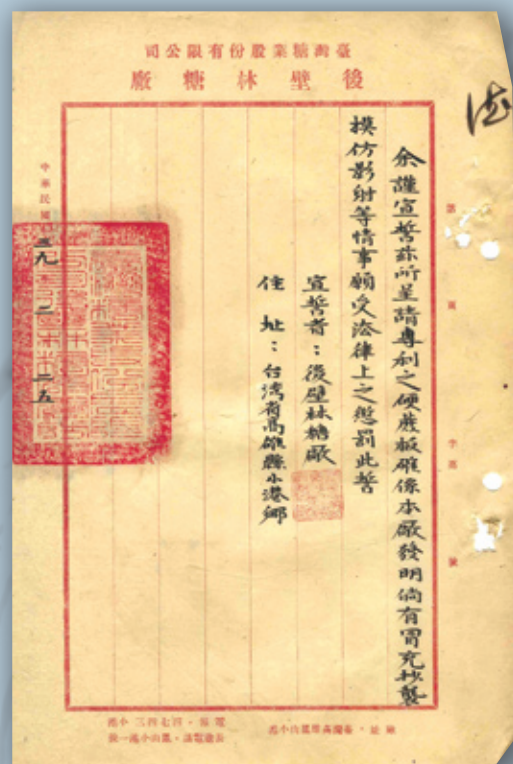 臺灣糖業股份有限公司
後壁林糖廠
余謹宣誓茲所呈請專利之硬蔗板確係本廠發明倘有冒充抄襲
模仿影射等情事願受法律上之懲罰此誓
宣誓者：後壁林糖廠
住址：台灣省高雄縣小港鄉
中華民國
卅九 二 二五
第
頁
字第
號